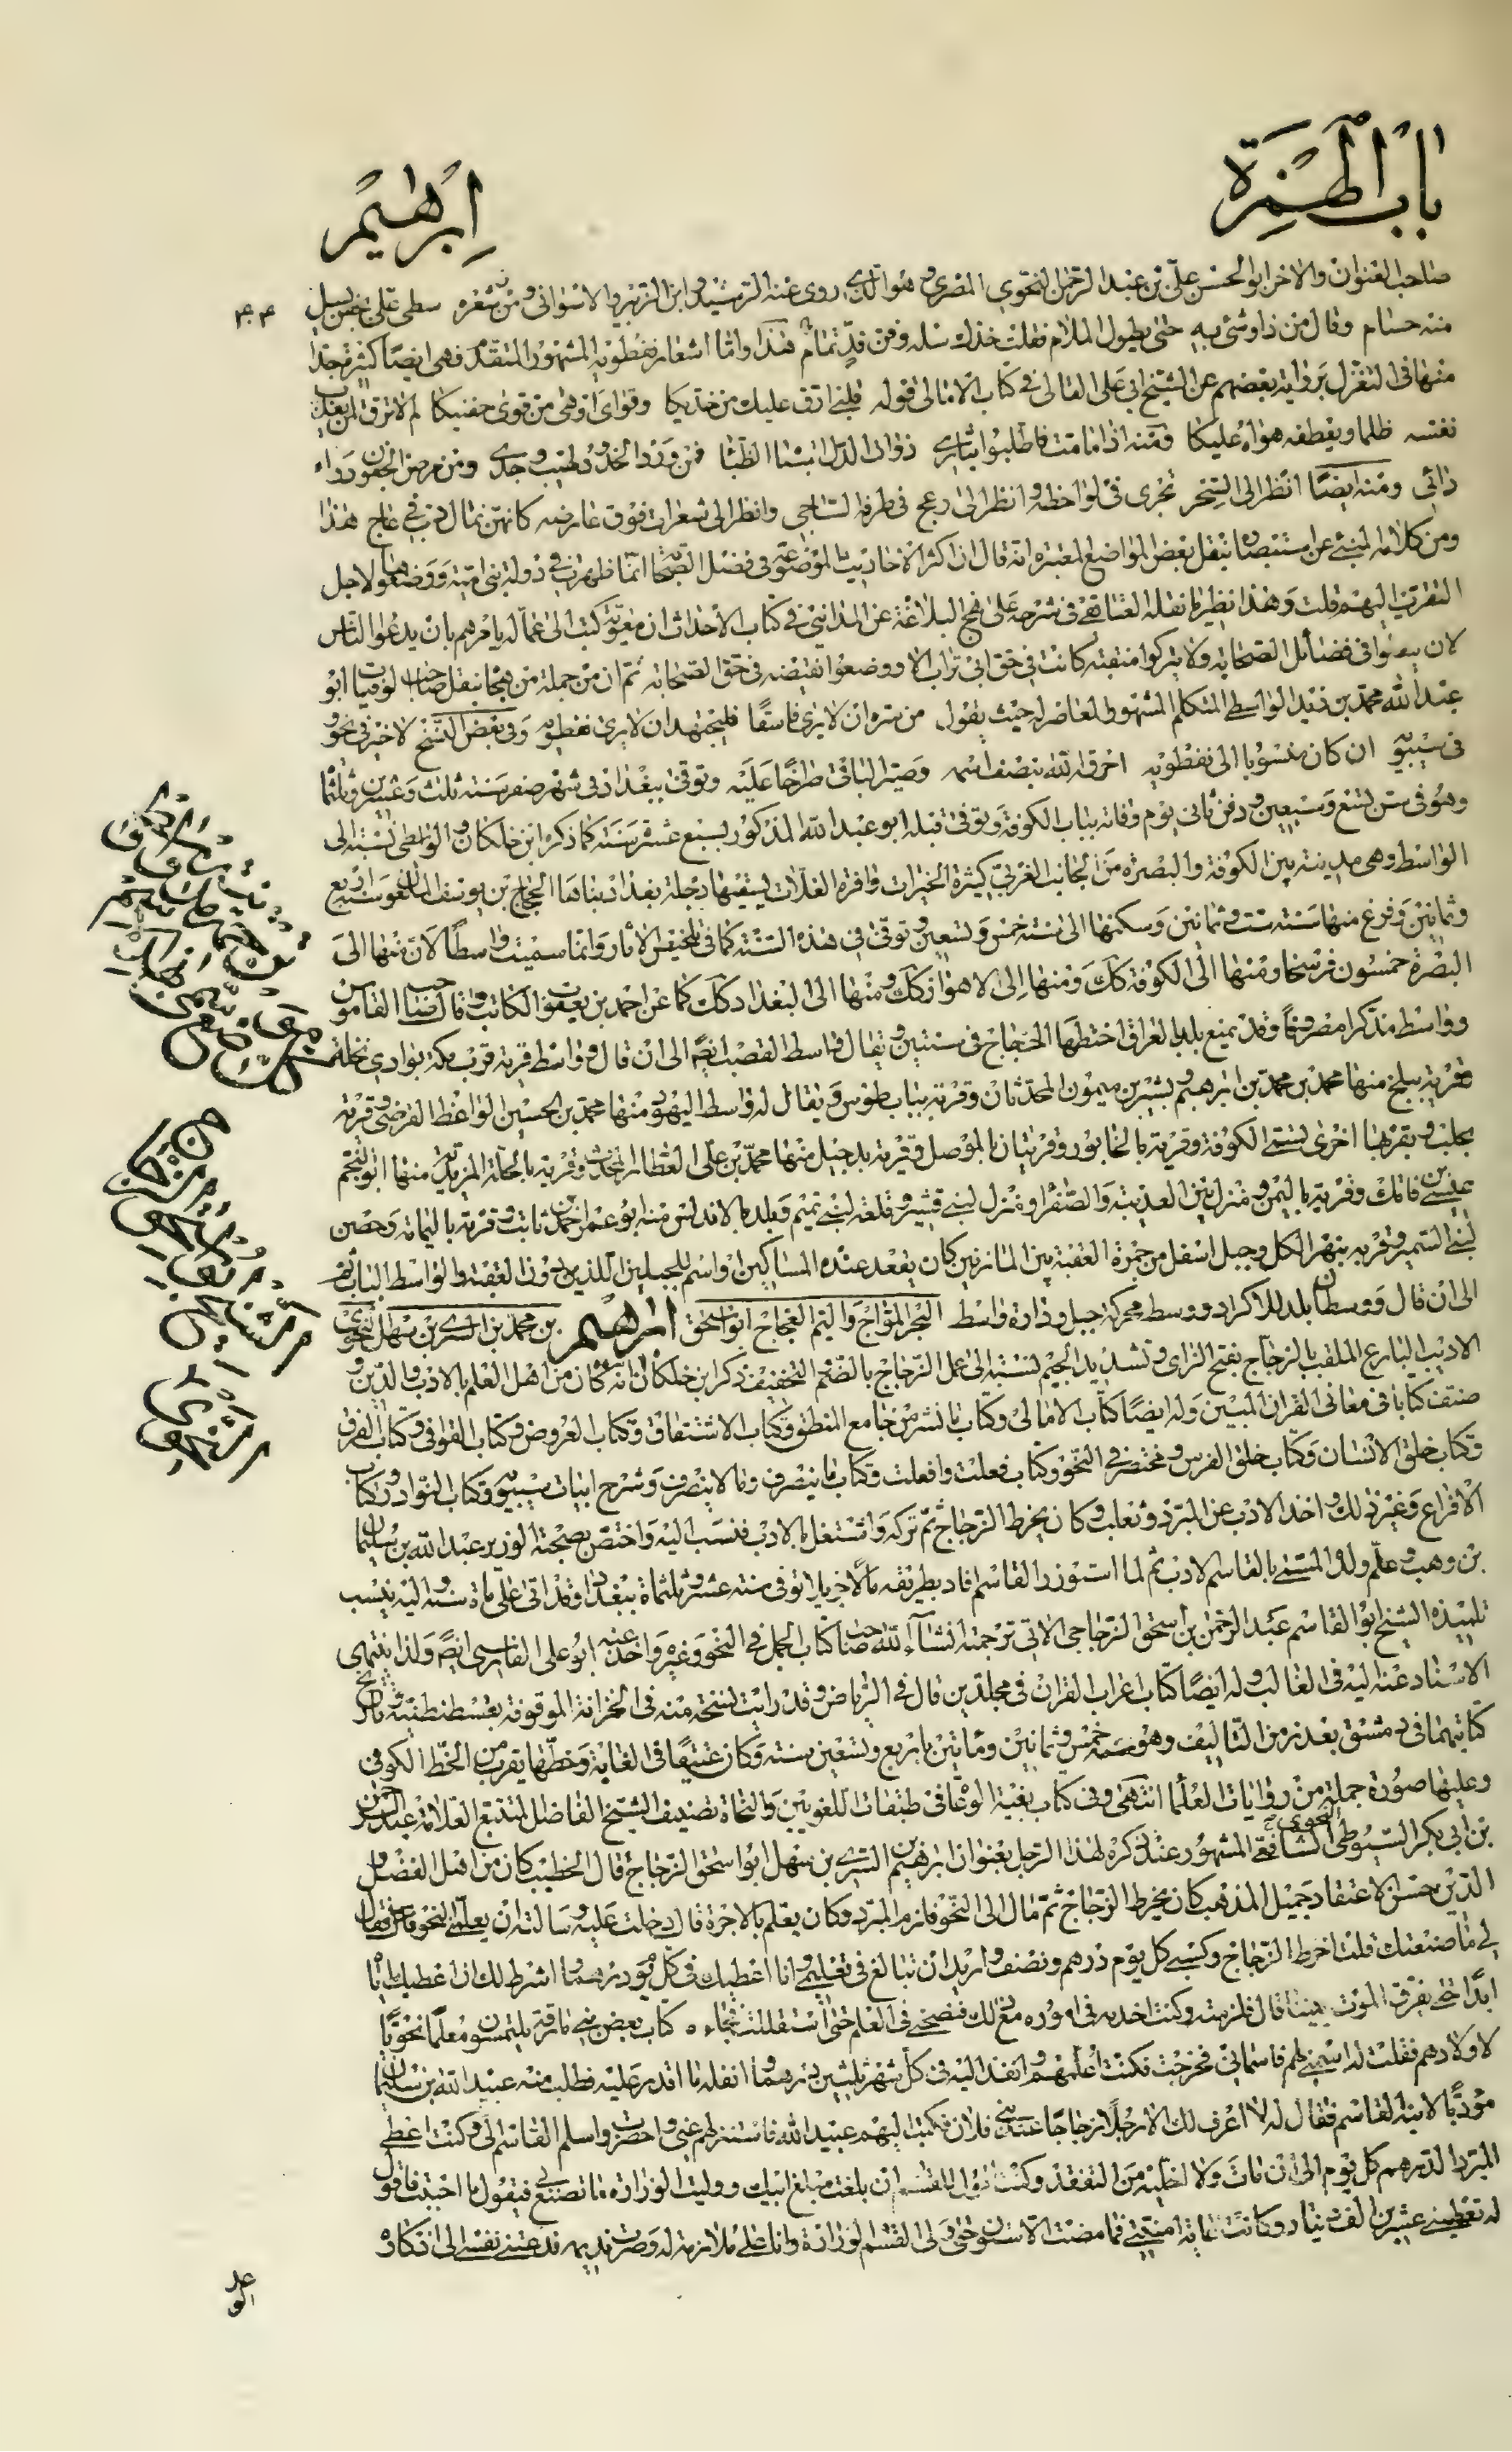 باب الهمزة
ابرهيم
صاحب العنوان والاخر ابو الحسن علی بن عبد الرحمن النحوی المصری وهو الذی روی عنه الرشید وابن الزبیر والاسوانی ومن شعره سطی علی
منه حسام وقال من ذا وشی به حتی یطول الملام فقلت هذا وامّا اشعار نفطویه المشهور المتقدم فهی ایضًا کثیرة جدا
منها فی التغزل بروایة بعضهم عن الشیخ ابی علی القالی فی کتاب الامالی قوله قلبی ارق علیك من خدیکا وقوای اوهی من قوی جفنیکا لم لا ترق لمن یعذب
نفسه ظلما ویعطفه هواه علیکا ومنه اذا ما مت فاطلبوا بثاری ذوات الدل اشباه الظبا فمن ورد الخدود لهیب وجدی ومن مرض الجفون
دائی ومنه ایضًا انظر الی السحر تجری فی لواحظه وانظر الی دعج فی طرفه الساجی وانظر الی شعرات فوق عارضه کانهن نمال دب فی عاج هذا
ومن کلامه المنبئ عن استبصاره بنقل بعض المواضع المعتبرة انه قال ان اکثر الاحادیث الموضوعة فی فضل الصحابة انما ظهرت فی دولة بنی امیة ووضعوها لاجل
التقرب الیهم قلت وهذا نظیر ما نقله فی شرحه علی نهج البلاغة عن المداینی فی کتاب الاحداث ان معویة کتب الی عماله یامرهم بان یدعوا الناس
لان یصنوا فی فضائل الصحابة ولا یترکوا منقبة کانت فی حق ابی تراب الا ووضعوا نقیضه فی حق الصحابة ثم ان من جملة من هجا بنقل صاحب الوفیات ابو
عبد الله محمد بن زید الواسطی المتکلم المشهور المعاصر له حیث یقول من سره ان لا یری فاسقًا فلیجتهد ان لا یری نفطویه وفی بعض النسخ لا خیر فی نحو
فی سیبویه ان کان منسوبا الی نفطویه احرقه الله بنصف اسمه وصیر الباقی صراخًا علیه وتوفی ببغداد فی شهر صفر سنة ثلث وعشرین وثلثمائة
وهو فی سن بضع وسبعین ودفن ثانی یوم وفاته بباب الکوفة وتوفی قبله ابو عبد الله المذکور بسبع عشرة سنة کما ذکره ابن خلکان والواسطی نسبته الی
الواسط وهی مدینة بین الکوفة والبصرة من الجانب الغربی کثیرة الخیرات وافرة الغلات یسقیها دجلة بغداد بناها الحجاج بن یوسف الثقفی سنة اربع
وثمانین وفرغ منها سنة ست وثمانین وسکنها الی سنة خمس وتسعین وتوفی فی هذه السنة کما فی تلخیص الاثار وانما سمیت واسطًا لان منها الی
البصرة خمسون فرسخا ومنها الی الکوفة کك ومنها الی الاهواز کك ومنها الی البغداد کك کما عن احمد بن یعقوب الکاتب وقال صاحب القاموس
وواسط مذکرا مصروفًا وقد یمنع بلد بالعراق اختطها الحجاج فی سنتین ویقال واسط القصب ایضًا الی ان قال وواسط قریة قرب مکة بوادی نخلة
وقریة ببلخ منها محمد بن محمد بن ابرهیم وبشیر بن میمون المحدثان وقریة بباب طوس ویقال له واسط الیهود منها محمد بن الحسین الواعظ الفرضی وقریة
بحلب وبقربها اخری تسمی الکوفة وقریة بالخابور وقریتان بالموصل وقریة بدجیل منها محمد بن علی العطار المحدث وقریة بالحلة المزیدیة منها ابو النجم
عیسی بن فاتك وقریة بالیمن ومنزل بین العذیبة والصفراء ومنزل لبنی قشیر وقلعة لبنی تمیم وبلد بالاندلس منه ابو عمر احمد بن ثابت وقریة بالیمامة وحصن
لبنی السمیر وقریة بنهر الملك وجبل اسفل من جمرة العقبة بین المازمین کان یقعد عنده المساکین او اسم للجبلین اللذین دون العقبة والواسط الباب
الی ان قال ووسطان بلد للاکراد ووسط محرکة جبل ودارة واسط البحر المواج والیم العجاج ابو اسحق ابرهیم بن محمد بن السری بن سهل النحوی
الادیب البارع الملقب بالزجاج بفتح الزای وتشدید الجیم نسبته الی عمل الزجاج بالضم والتخفیف ذکر ابن خلکان انه کان من اهل العلم بالادب والدین و
صنف کتابا فی معانی القران المبین وله ایضًا کتاب الامالی وکتاب ما فسر من جامع المنطق وکتاب الاشتقاق وکتاب العروض وکتاب القوافی وکتاب الفرق
وکتاب خلق الانسان وکتاب خلق الفرس ومختصر فی النحو وکتاب فعلت وافعلت وکتاب ما ینصرف وما لا ینصرف وشرح ابیات سیبویه وکتاب النوادر وکتاب
الانواع وغیر ذلك واخذ الادب عن المبرد وثعلب وکان یخرط الزجاج ثم ترکه واشتغل بالادب فنسب الیه واختص بصحبة الوزیر عبد الله بن سلیمان
بن وهب وعلم ولده المسمی بالقاسم الادب ثم لما استوزر القاسم افاد بطریقه مالا جزیلا توفی سنة عشر وثلثمائة ببغداد وقد اتی علی مائة سنة والیه ینسب
تلمیذه الشیخ ابو القاسم عبد الرحمن بن اسحق الزجاجی الاتی ترجمته انشاء الله صاحب کتاب الجمل فی النحو وغیره واخذ عنه ابو علی الفارسی ایضًا ولذا ینتهی
الاسناد عنه الیه فی الغالب وله ایضًا کتاب اعراب القران فی مجلدین قال فی الریاض وقد رایت نسخة منه فی الخزانة الموقوفة بقسطنطنیة وتاریخ
کتابتهما فی دمشق بعد زمن التالیف وهو سنة خمس وثمانین ومائتین باربع وتسعین سنة وکان عتیقًا فی الغایة وخطها یقرب من الخط الکوفی
وعلیها صورة جملة من روایات العلما انتهی وفی کتاب بغیة الوعاة فی طبقات اللغویین والنحاة تصنیف الشیخ الفاضل المتتبع العلامة عبد الرحمن
بن ابی بکر السیوطی الشافعی النحوی المشهور عند ذکره لهذا الرجل بعنوان ابرهیم بن السری بن سهل ابو اسحق الزجاج قال الخطیب کان من اهل الفضل و
الدین حسن الاعتقاد جمیل المذهب کان یخرط الزجاج ثم مال الی النحو فلزم المبرد وکان یعلم بالاجرة قال دخلت علیه وسالته ان یعلمنی النحو فقال
لی ما صنعتك قلت اخرط الزجاج وکسبی کل یوم درهم ونصف وارید ان تبالغ فی تعلیمی وانا اعطیك فی کل یوم درهما واشرط لك ان اعطیك ایاه
ابدًا حتی یفرق الموت بیننا قال فلزمته وکنت اخدمه فی اموره مع ذلك فنصحنی فی العلم حتی استقللت فجاءه کتاب بعض بنی مارقة یلتمسون معلمًا نحویًا
لاولادهم فقلت له اسمنی لهم فاسمانی فخرجت فکنت اعلمهم وانفذ الیه فی کل شهر ثلثین درهما وانفله ما اقدر علیه فطلب منه عبید الله بن سلیمان
مؤدبًا لابنه القاسم فقال له لا اعرف لك الا رجلا زجاجًا عند بنی فلان فکتب الیهم عبید الله فاستنزلهم عنی واحضرت واسلم القاسم الی وکنت اعطی
المبرد الدرهم کل یوم الی ان مات ولا اخلیه من التفقد وکنت اقول للقاسم ان بلغت مبلغ ابیك وولیت الوزارة ما تصنع بی فیقول ما احببت فاقول
له تعطینی عشرین الف دینار وکانت غایة امنیتی فما مضت الا سنون حتی ولی القسم الوزارة وانا علی ملازمته له وصرت ندیمه فدعتنی نفسی الی اذکاره